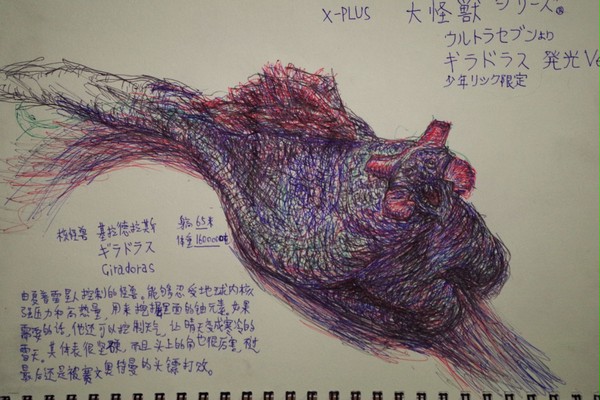 X-PLUS 大怪獣 シリーズ®
ウルトラセブンより
ギラドラス 発光Ve
少年リック限定
核怪兽 基拉德拉斯 身高 65米
ギラドラス 体重 160000吨
Giradoras
由夏普雷星人控制的怪兽。能够忍受地球内核
强压力和高热量，用来挖掘里面的铀元素。如果
需要的话，他还可以控制天气，让晴天变成寒冷的
雪天。其体表很坚硬，而且头上的角也很厉害，
最后还是被赛文奥特曼的头镖打败。